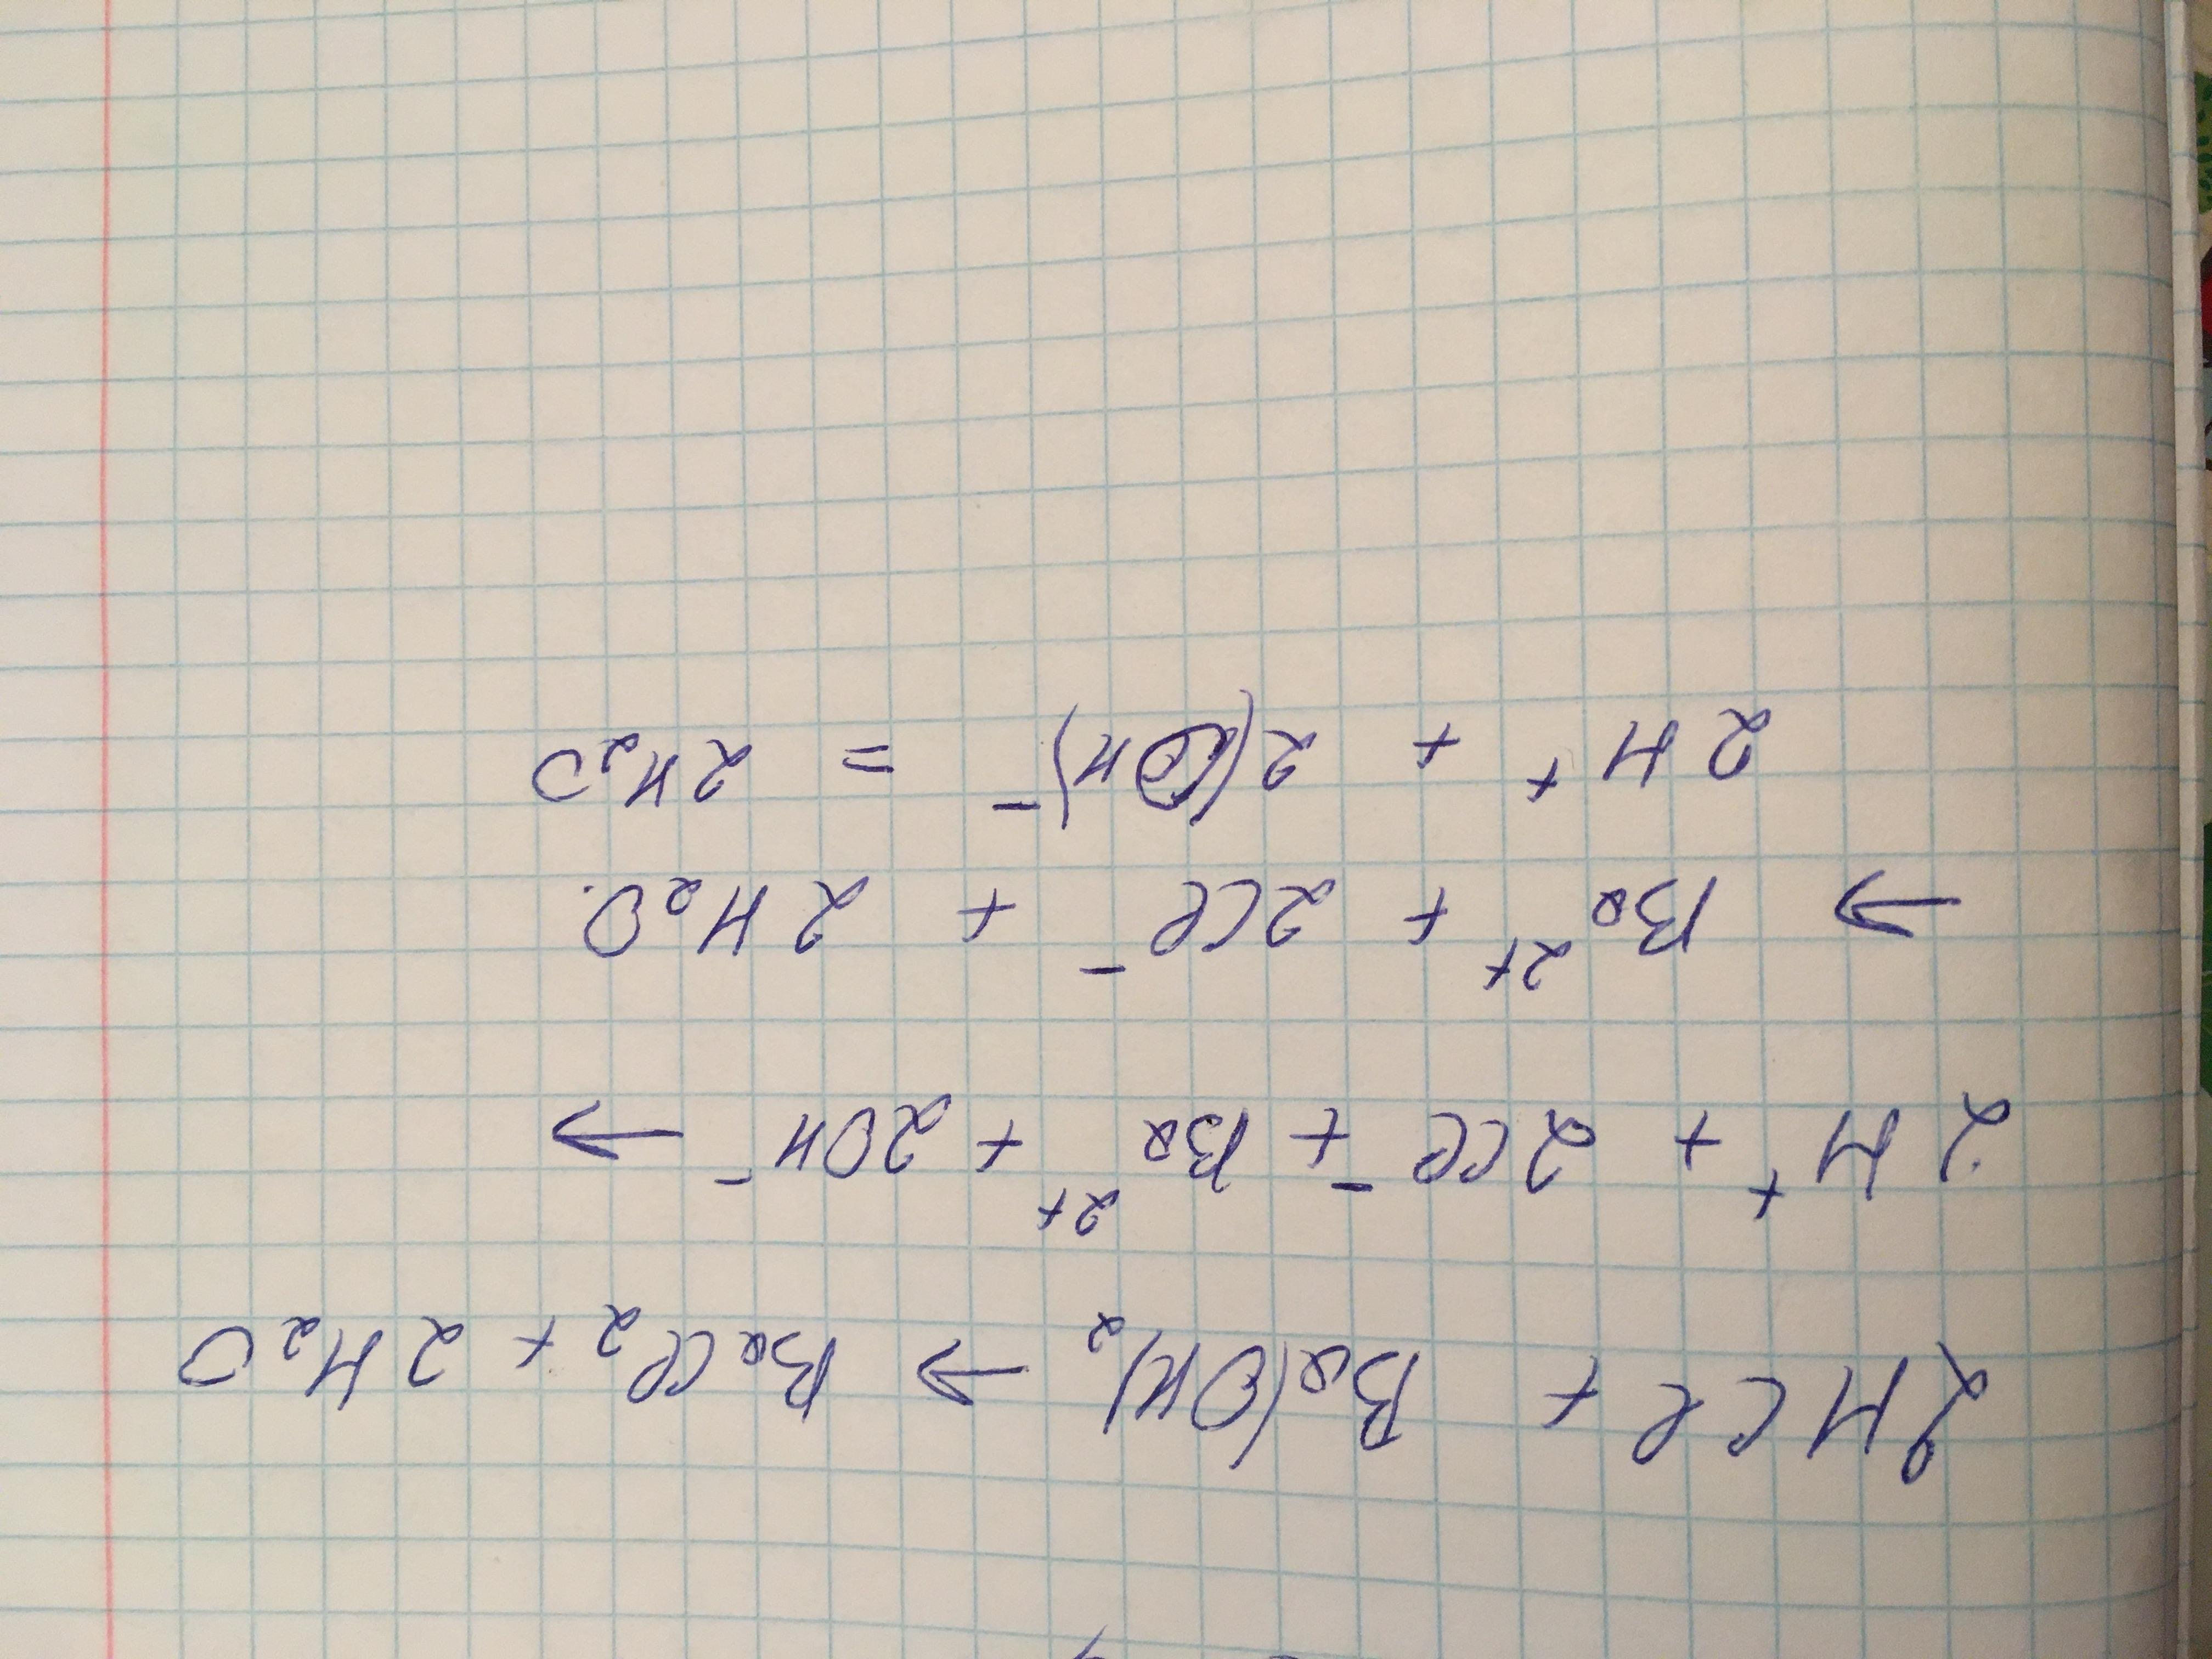 2HCl + Ba(OH)₂ → BaCl₂ + 2H₂O
2H⁺ + 2Cl⁻ + Ba²⁺ + 2OH⁻ →
→ Ba²⁺ + 2Cl⁻ + 2H₂O.
2H⁺ + 2(OH)⁻ = 2H₂O